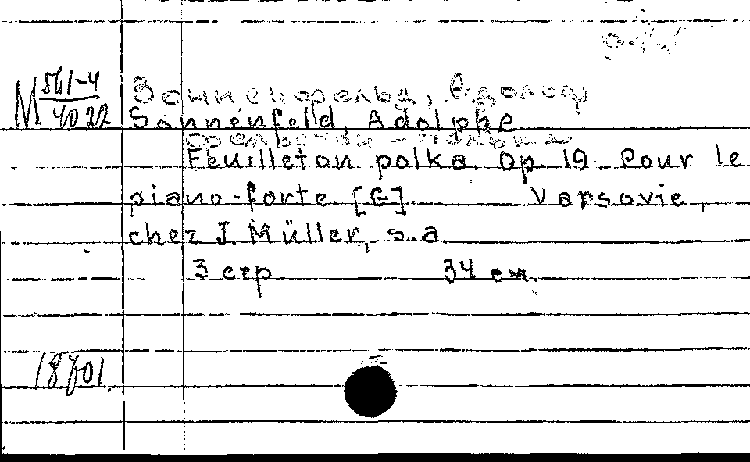 М 561-4
4022
Зонненфельд, Адольф
Sonnenfeld, Adolphe
Фельетон - полька
Feuilleton polka. Op 19. Pour le
piano-forte [G] Varsovie,
chez J. Müller, s.a
3 стр 34 см.